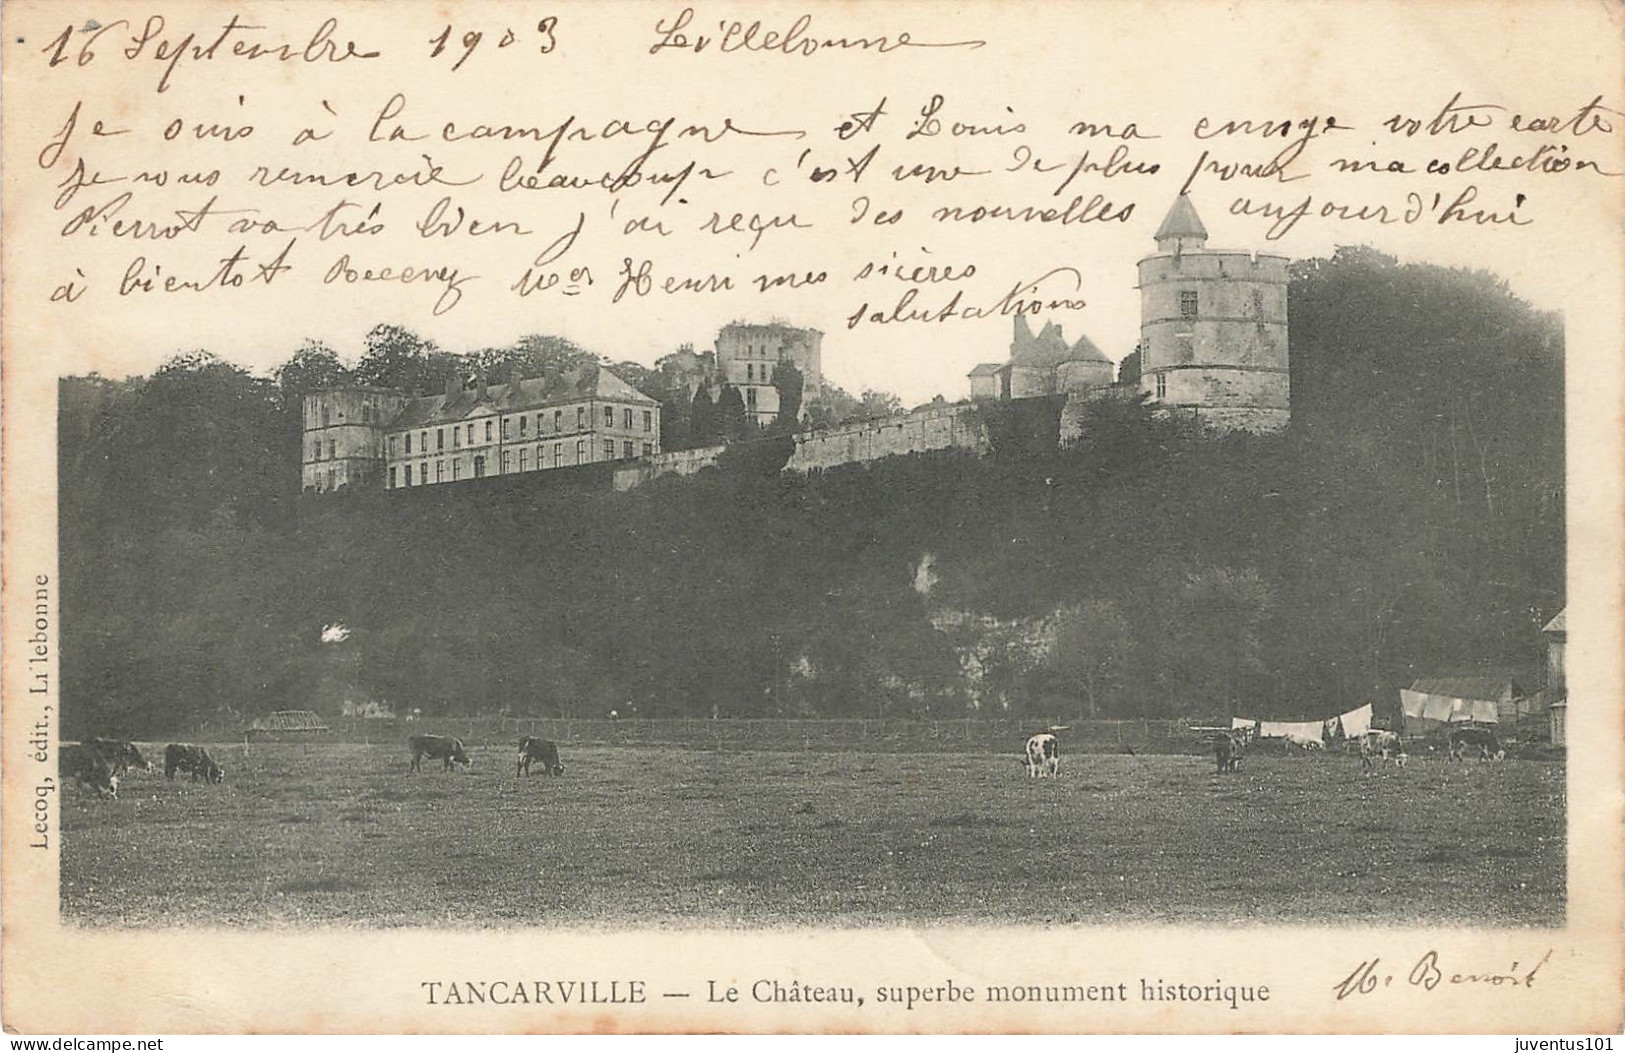 16 Septembre 1903 Lillebonne
Je suis à la campagne et Louis ma envoye votre carte
Je vous remercie beaucoup c'est une de plus pour ma collection
Pierrot va très bien j'ai reçu des nouvelles aujourd'hui
à bientôt Recevez Henri mes sicères
salutations
Lecoq, édit., Lillebonne
TANCARVILLE — Le Château, superbe monument historique
M. Benoit
www.delcampe.net
juventus101